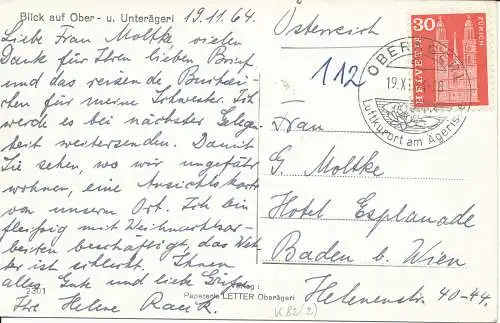 Blick auf Ober- u. Unterägeri
19.11.64
Liebe Frau Moltke vielen
Dank für Ihren lieben Brief
und das reisende
für meine Schwester. Ich
werde es bei nächster Gelegen-
heit weitersenden. Damit
Sie sehen, wo wir ungefähr
wohnen, eine Ansichtskarte
von unserm Ort. Ich bin
fleissig mit Weihnachtsar-
beiten beschäftigt, das Wet-
ter ist schlecht. Ihnen
alles Gute und liebe Grüsse
Ihre Helene
2301
Verlag:
Papeterie LETTER Oberägeri
Österreich
112
Frau
G. Moltke
Hotel Esplanade
Baden b/ Wien
Helenenstr. 40-44.
K 82(2)
30
HELVETIA
ZÜRICH
OBERÄGERI
19.X
Luftkurort am Ägerisee